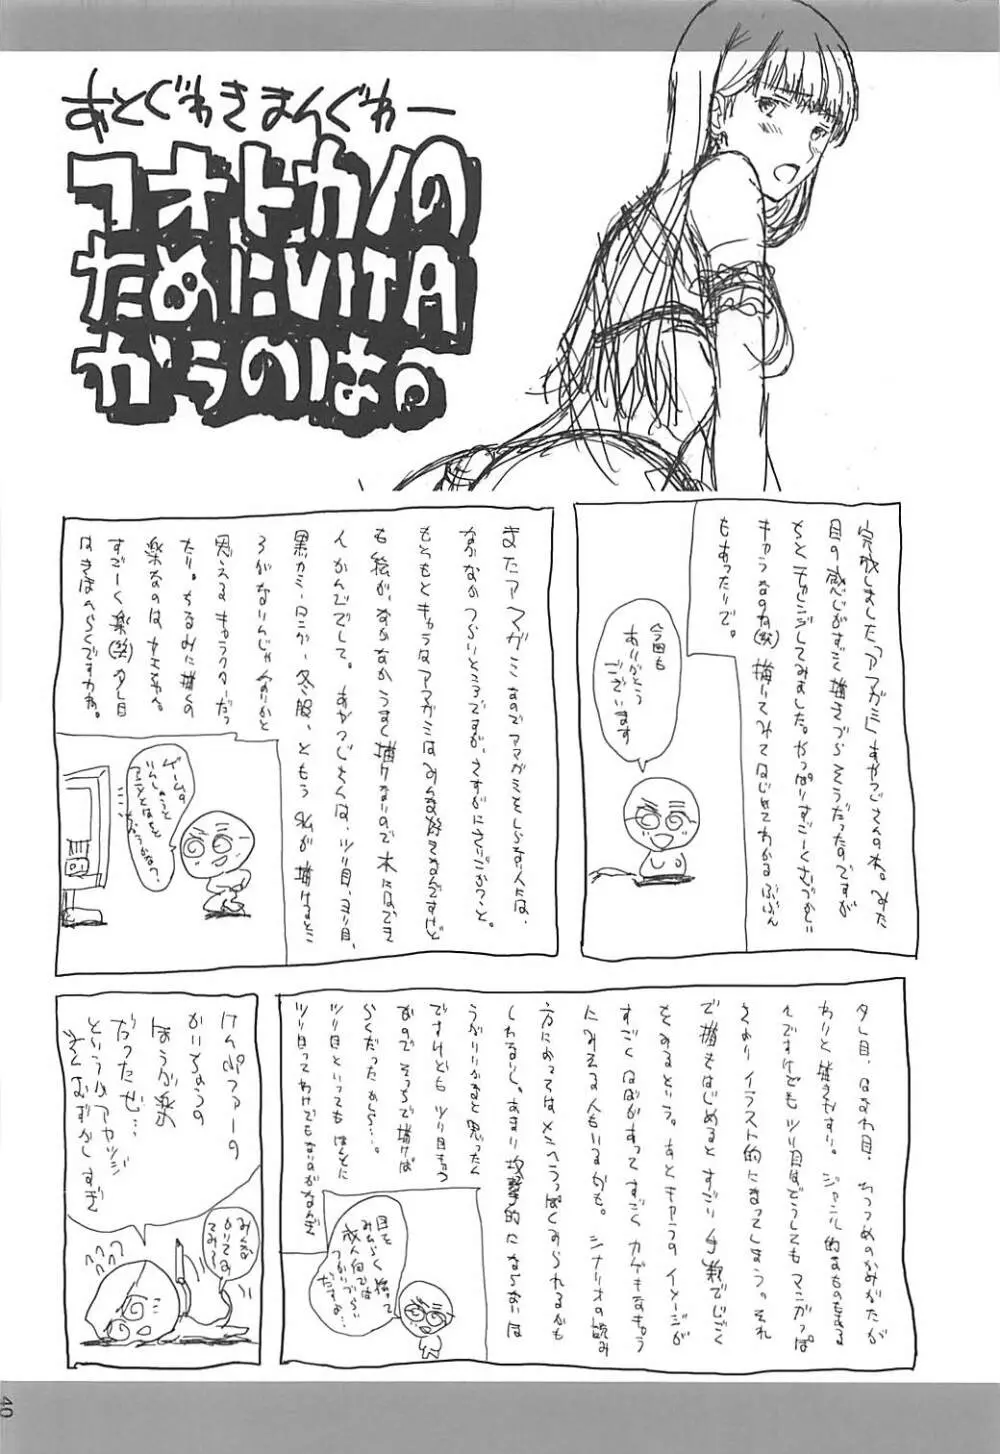 あとぐわきまんぐわー
コオトカノの
ためにVITA
かうのはる
完成しました「アマガミ」あやつじさんの本。みた
目の感じがすごく描きづらそうだったのですが
ちとチャレンジしてみました。やっぱりすごーくむづかしい
キャラなのね(笑)描いてみてはじめてわかるぶぶん
もあったりで。
今回も
ありがとう
ございます
またアマガミなのでアマガミをしらない人には、
なかなかつらいところですが、さすがにさいごかな?と。
もともとキャラはアマガミはみんな好きなんですけど
も絵が、なかなかうまく描けないので本にはでき
んかんじでして。あやつじさんは、ツリ目、ヨリ目、
黒カミ、ロング、冬服、ともう私が描けるとこ
ろがないんじゃないかと
思えるキャラクターだっ
たり。ちなみに描くの
楽なのは
すごーく楽(笑)タレ目
はきほんらくですわね。
ゲームの
いんしょうと
アニメとはほと
タレ目、はなれ目、
わりと描きやすい。ジャンル的なものもある
んですけどもツリ目はどうしてもマンガっぽ
イラスト的になってしまう。それ
で描もはじめるとすごい手数でじごく
をみるという。あとキャラのイメージが
すごくはばがあってすごくカゲキなキャラ
にみえる人もいるかも。シナリオの読み
方によってはメンヘラっぽくみられるかも
しれないし。あまり攻撃的にならないほ
うがいいかなと思ったん
ですけどもツリ目キャラ
なのでそっちで描けば
らくだったかしら…。
ツリ目といってもほんとに
ツリ目ってわけでもないのがなんぎ
目を
描いて
成人向では
つかいづらい
だすよ
けんぷファーの
かいちょうの
ほうが楽
だったぜ…
というかアヤツジ
さんむずかしすぎ
みんな
かいて
みて!
40